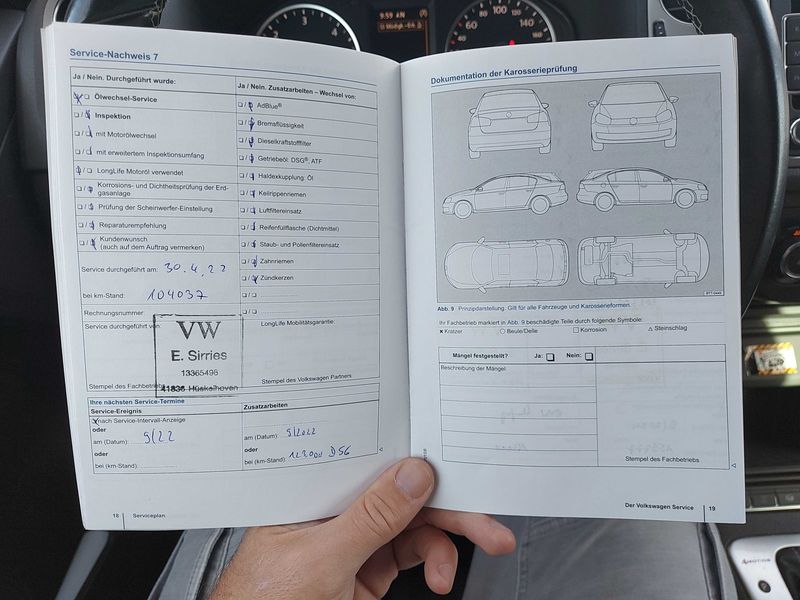 9:59 AM
Service-Nachweis 7
Ja / Nein. Durchgeführt wurde:
Ölwechsel-Service
Inspektion
mit Motorölwechsel
mit erweitertem Inspektionsumfang
LongLife Motoröl verwendet
Korrosions- und Dichtheitsprüfung der Erd-
gasanlage
Prüfung der Scheinwerfer-Einstellung
Reparaturempfehlung
Kundenwunsch
(auch auf dem Auftrag vermerken)
Service durchgeführt am: 30.4.22
bei km-Stand: 104037
Rechnungsnummer:
Service durchgeführt von:
VW
E. Sirries
13365496
41836 Hückelhoven
Stempel des Fachbetriebs
Ja / Nein. Zusatzarbeiten – Wechsel von:
AdBlue®
Bremsflüssigkeit
Dieselkraftstofffilter
Getriebeöl: DSG®, ATF
Haldexkupplung: Öl
Keilrippenriemen
Luftfiltereinsatz
Reifenfüllflasche (Dichtmittel)
Staub- und Pollenfiltereinsatz
Zahnriemen
Zündkerzen
LongLife Mobilitätsgarantie:
Stempel des Volkswagen Partners
Ihre nächsten Service-Termine
Service-Ereignis
nach Service-Intervall-Anzeige
oder
am (Datum): 5/22
oder
bei (km-Stand):
Zusatzarbeiten
am (Datum): 5/2022
oder
bei (km-Stand): 123000 DSG
18 Serviceplan
Dokumentation der Karosserieprüfung
Abb. 9 Prinzipdarstellung. Gilt für alle Fahrzeuge und Karosserieformen.
Ihr Fachbetrieb markiert in Abb. 9 beschädigte Teile durch folgende Symbole:
× Kratzer ○ Beule/Delle □ Korrosion △ Steinschlag
Mängel festgestellt? Ja: □ Nein: □
Beschreibung der Mängel
Stempel des Fachbetriebs
Der Volkswagen Service 19
4MOTION